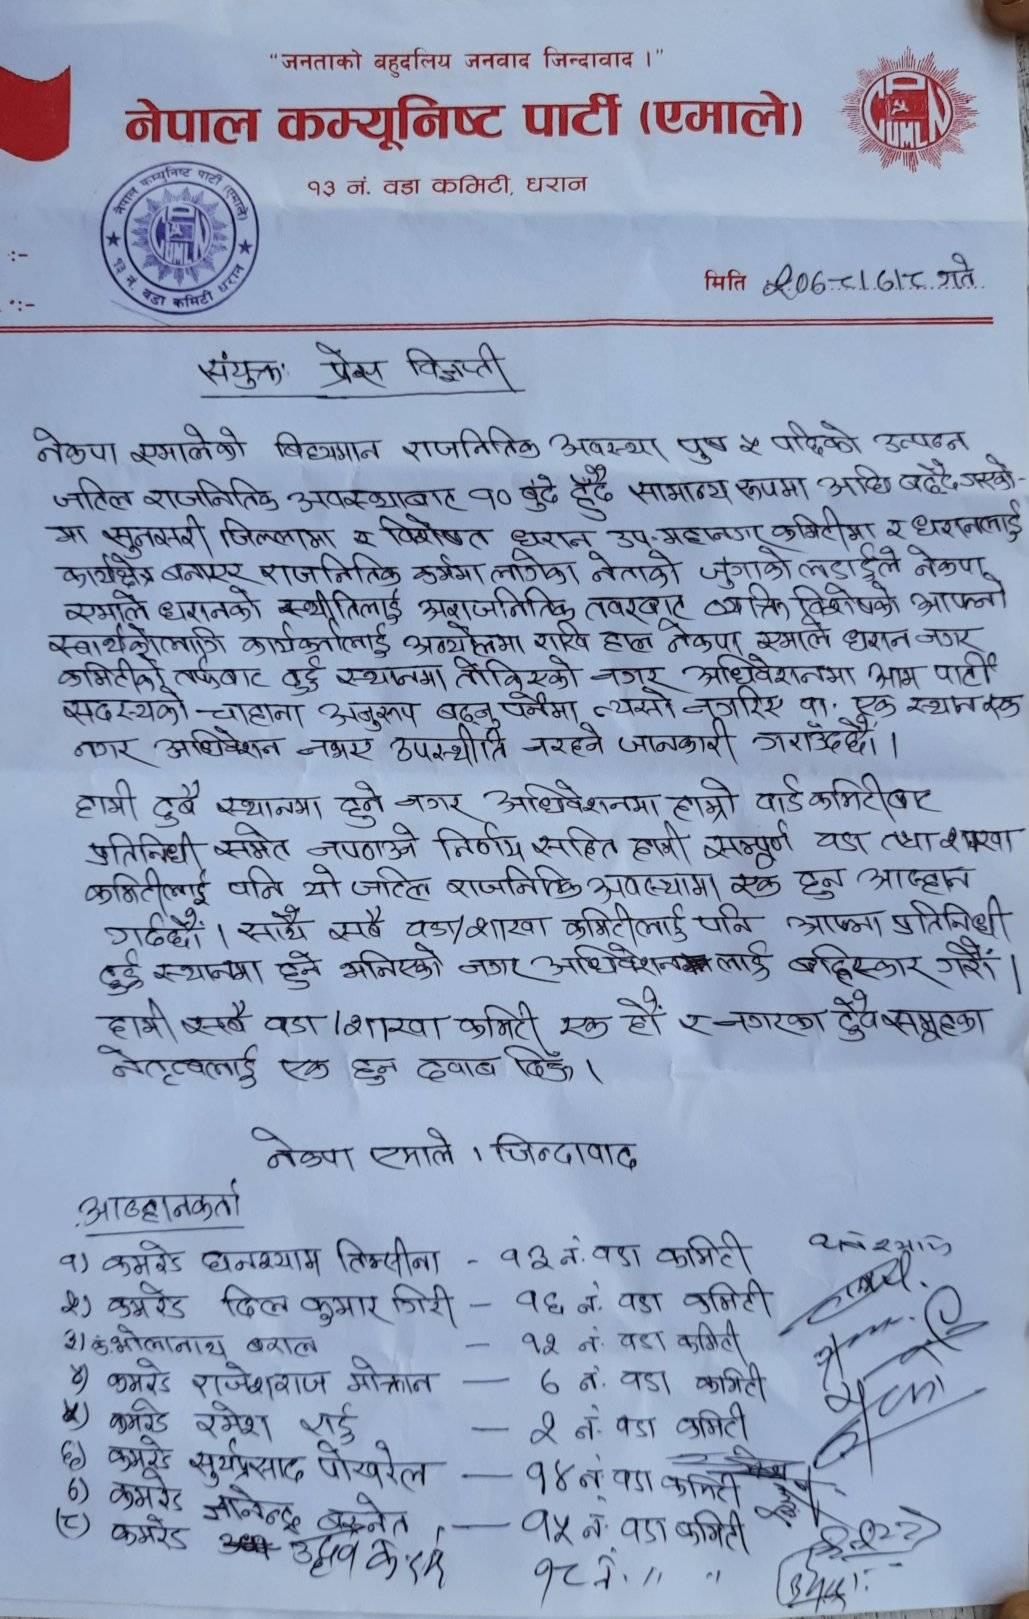 "जनताको बहुदलिय जनवाद जिन्दावाद ।"
नेपाल कम्यूनिष्ट पार्टी (एमाले)
१३ नं. वडा कमिटी, धरान
नेपाल कम्युनिष्ट पार्टी (एमाले)
CPN UML
१३ नं. वडा कमिटी धरान
मिति २०७८।७।८ गते
संयुक्त प्रेस विज्ञप्ती
नेकपा एमालेको बिद्यमान राजनितिक अवस्था पुष ५ पछिको उत्पन्न
जटिल राजनितिक अवस्थाबाट १० बुंदे हुँदै सामान्य रूपमा अघि बढ्दै गएको-
मा सुनसरी जिल्लामा र विशेषत धरान उप-महानगर कमिटीमा र धरानलाई
कार्यक्षेत्र बनाएर राजनितिक कर्ममा लागेका नेताको जुंगाको लडाईले नेकपा
एमाले धरानको स्थीतिलाई अराजनितिक तवरबाट व्यक्ति विशेषको आफ्नो
स्वार्थकोलागि कार्यकर्तालाई अन्यौलमा राखि हाल नेकपा एमाले धरान नगर
कमिटीको तर्फबाट दुई स्थानमा तोकिएको नगर अधिवेशनमा आम पार्टी
सदस्यको चाहाना अनुरूप बढ्नु पर्नेमा त्यसो नगरिए वा. एक स्थान एक
नगर अधिवेशन नभए उपस्थीति नरहने जानकारी गराउँदछौं ।
हामी दुबै स्थानमा हुने नगर अधिवेशनमा हाम्रो वार्ड कमिटीबाट
प्रतिनिधी समेत नपठाउने निर्णय सहित हामी सम्पूर्ण वडा तथा शाखा
कमिटीलाई पनि यो जटिल राजनितिक अवस्थामा एक हुन आव्हान
गर्दछौं । साथै सबै वडा/शाखा कमिटीलाई पनि आफ्ना प्रतिनिधी
दुई स्थानमा हुने भनिएको नगर अधिवेशनलाई बहिस्कार गरौं ।
हामी सबै वडा/शाखा कमिटी एक हौं र नगरका दुवै समूहका
नेतृत्वलाई एक हुन दवाब दिऊँ ।
नेकपा एमाले । जिन्दावाद
आव्हानकर्ता
१) कमरेड घनश्याम तिम्सीना - १३ नं. वडा कमिटी
२) कमरेड दिल कुमार गिरी - १६ नं. वडा कमिटी
३) क. भोलानाथ बराल - १२ नं वडा कमिटी
४) कमरेड राजेशराज मोक्तान - ७ नं. वडा कमिटी
५) कमरेड रमेश राई - २ नं. वडा कमिटी
६) कमरेड सुर्यप्रसाद पोखरेल - १४ नं. वडा कमिटी
७) कमरेड ज्ञानेन्द्र बस्नेत - १५ नं वडा कमिटी
(८) कमरेड उद्धव १८ नं. " "